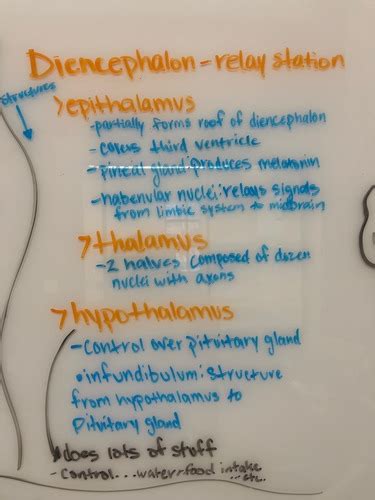 Diencephalon - relay station
structures
>epithalamus
-partially forms roof of diencephalon
-covers third ventricle
-pineal gland:produces melatonin
-habenular nuclei:relays signals
from limbic system to midbrain
>thalamus
-2 halves composed of dozen
nuclei with axons
>hypothalamus
-control over pituitary gland
•infundibulum:structure
from hypothalamus to
pituitary gland
*does lots of stuff
-control...water-food intake...
...etc.